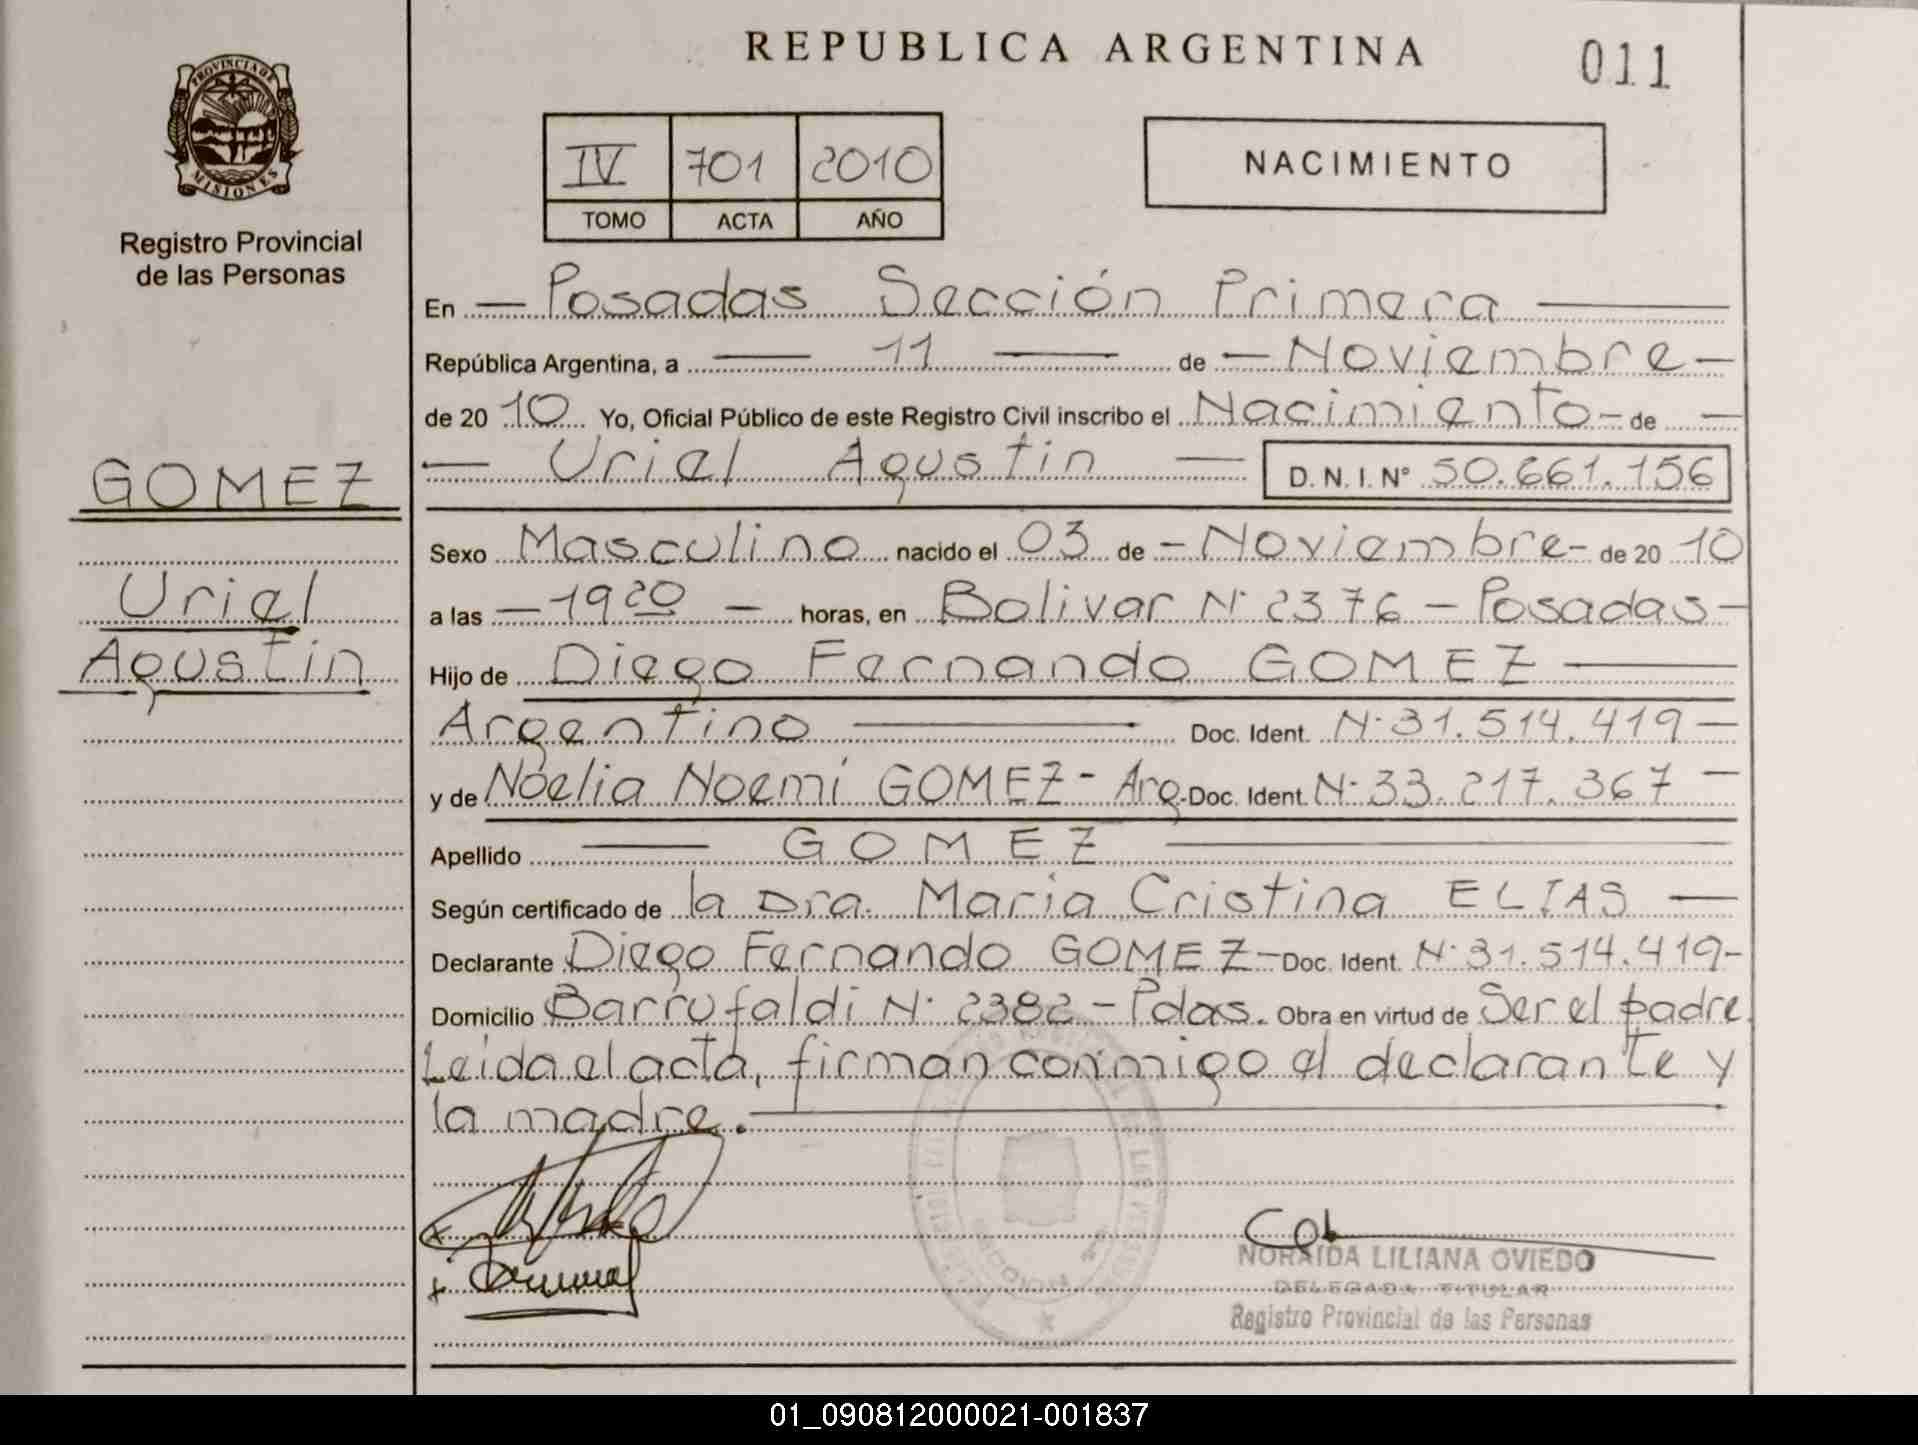 REPUBLICA ARGENTINA
011
PROVINCIA DE
MISIONES
Registro Provincial
de las Personas
IV 701 2010
TOMO ACTA AÑO
NACIMIENTO
En Posadas Sección Primera
República Argentina, a 11 de Noviembre
de 20 10 Yo, Oficial Público de este Registro Civil inscribo el Nacimiento de
Uriel Agustin D.N.I.N° 50.661.156
GOMEZ
Uriel
Agustin
Sexo Masculino nacido el 03 de Noviembre de 20 10
a las 19 20 horas, en Bolivar N° 2376 - Posadas
Hijo de Diego Fernando GOMEZ
Argentino Doc. Ident. N° 31.514.419
y de Noelia Noemí GOMEZ - Arg. Doc. Ident. N° 33.217.367
Apellido GOMEZ
Según certificado de la Dra. Maria Cristina ELIAS
Declarante Diego Fernando GOMEZ - Doc. Ident. N° 31.514.419-
Domicilio Barrufaldi N° 2382 - Pdas. Obra en virtud de Ser el padre.
Leida el acta, firman conmigo el declarante y
la madre.
NORAIDA LILIANA OVIEDO
DELEGADA TITULAR
Registro Provincial de las Personas
01_090812000021-001837